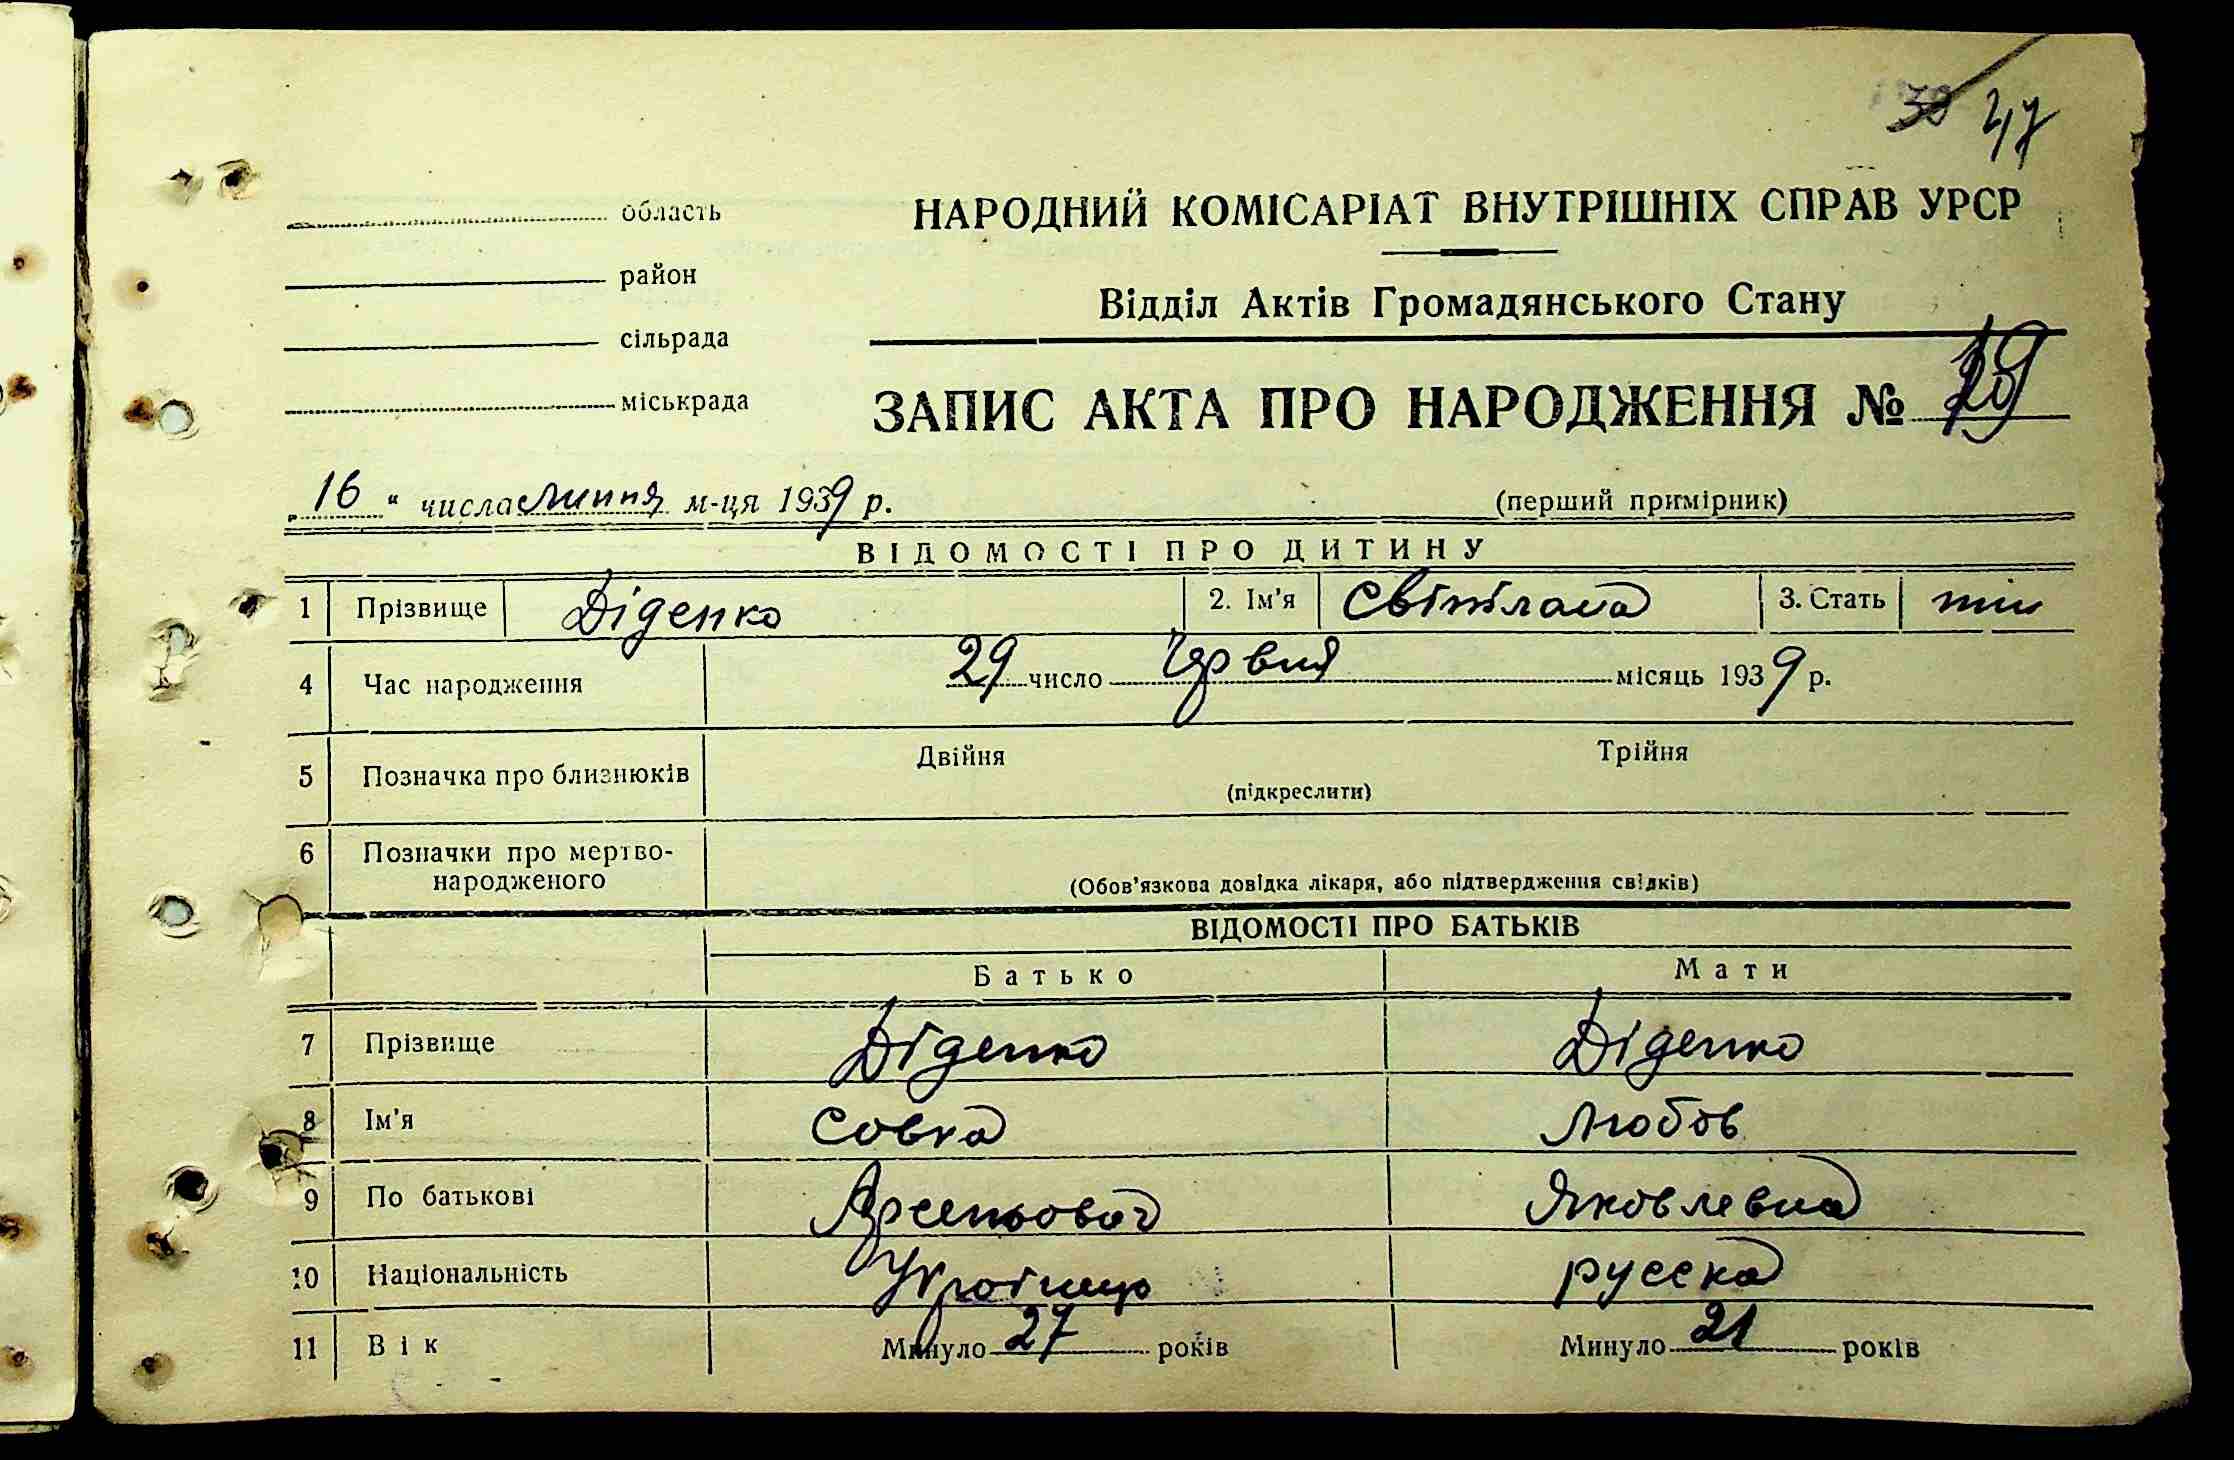 47
область
НАРОДНИЙ КОМІСАРІАТ ВНУТРІШНІХ СПРАВ УРСР
район
Відділ Актів Громадянського Стану
сільрада
міськрада
ЗАПИС АКТА ПРО НАРОДЖЕННЯ №
„16“ числа липня м-ця 1939 р. (перший примірник)
ВІДОМОСТІ ПРО ДИТИНУ
1 Прізвище Діденко 2. Ім'я Світлана 3. Стать
4 Час народження 29 число Червня місяць 1939 р.
5 Позначка про близнюків Двійня Трійня
(підкреслити)
6 Позначки про мертво-
народженого
(Обов'язкова довідка лікаря, або підтвердження свідків)
ВІДОМОСТІ ПРО БАТЬКІВ
Батько Мати
7 Прізвище Діденко Діденко
8 Ім'я Совка Любов
9 По батькові Арсеньович Яковлевна
10 Національність русска
11 Вік Минуло 27 років Минуло 21 років